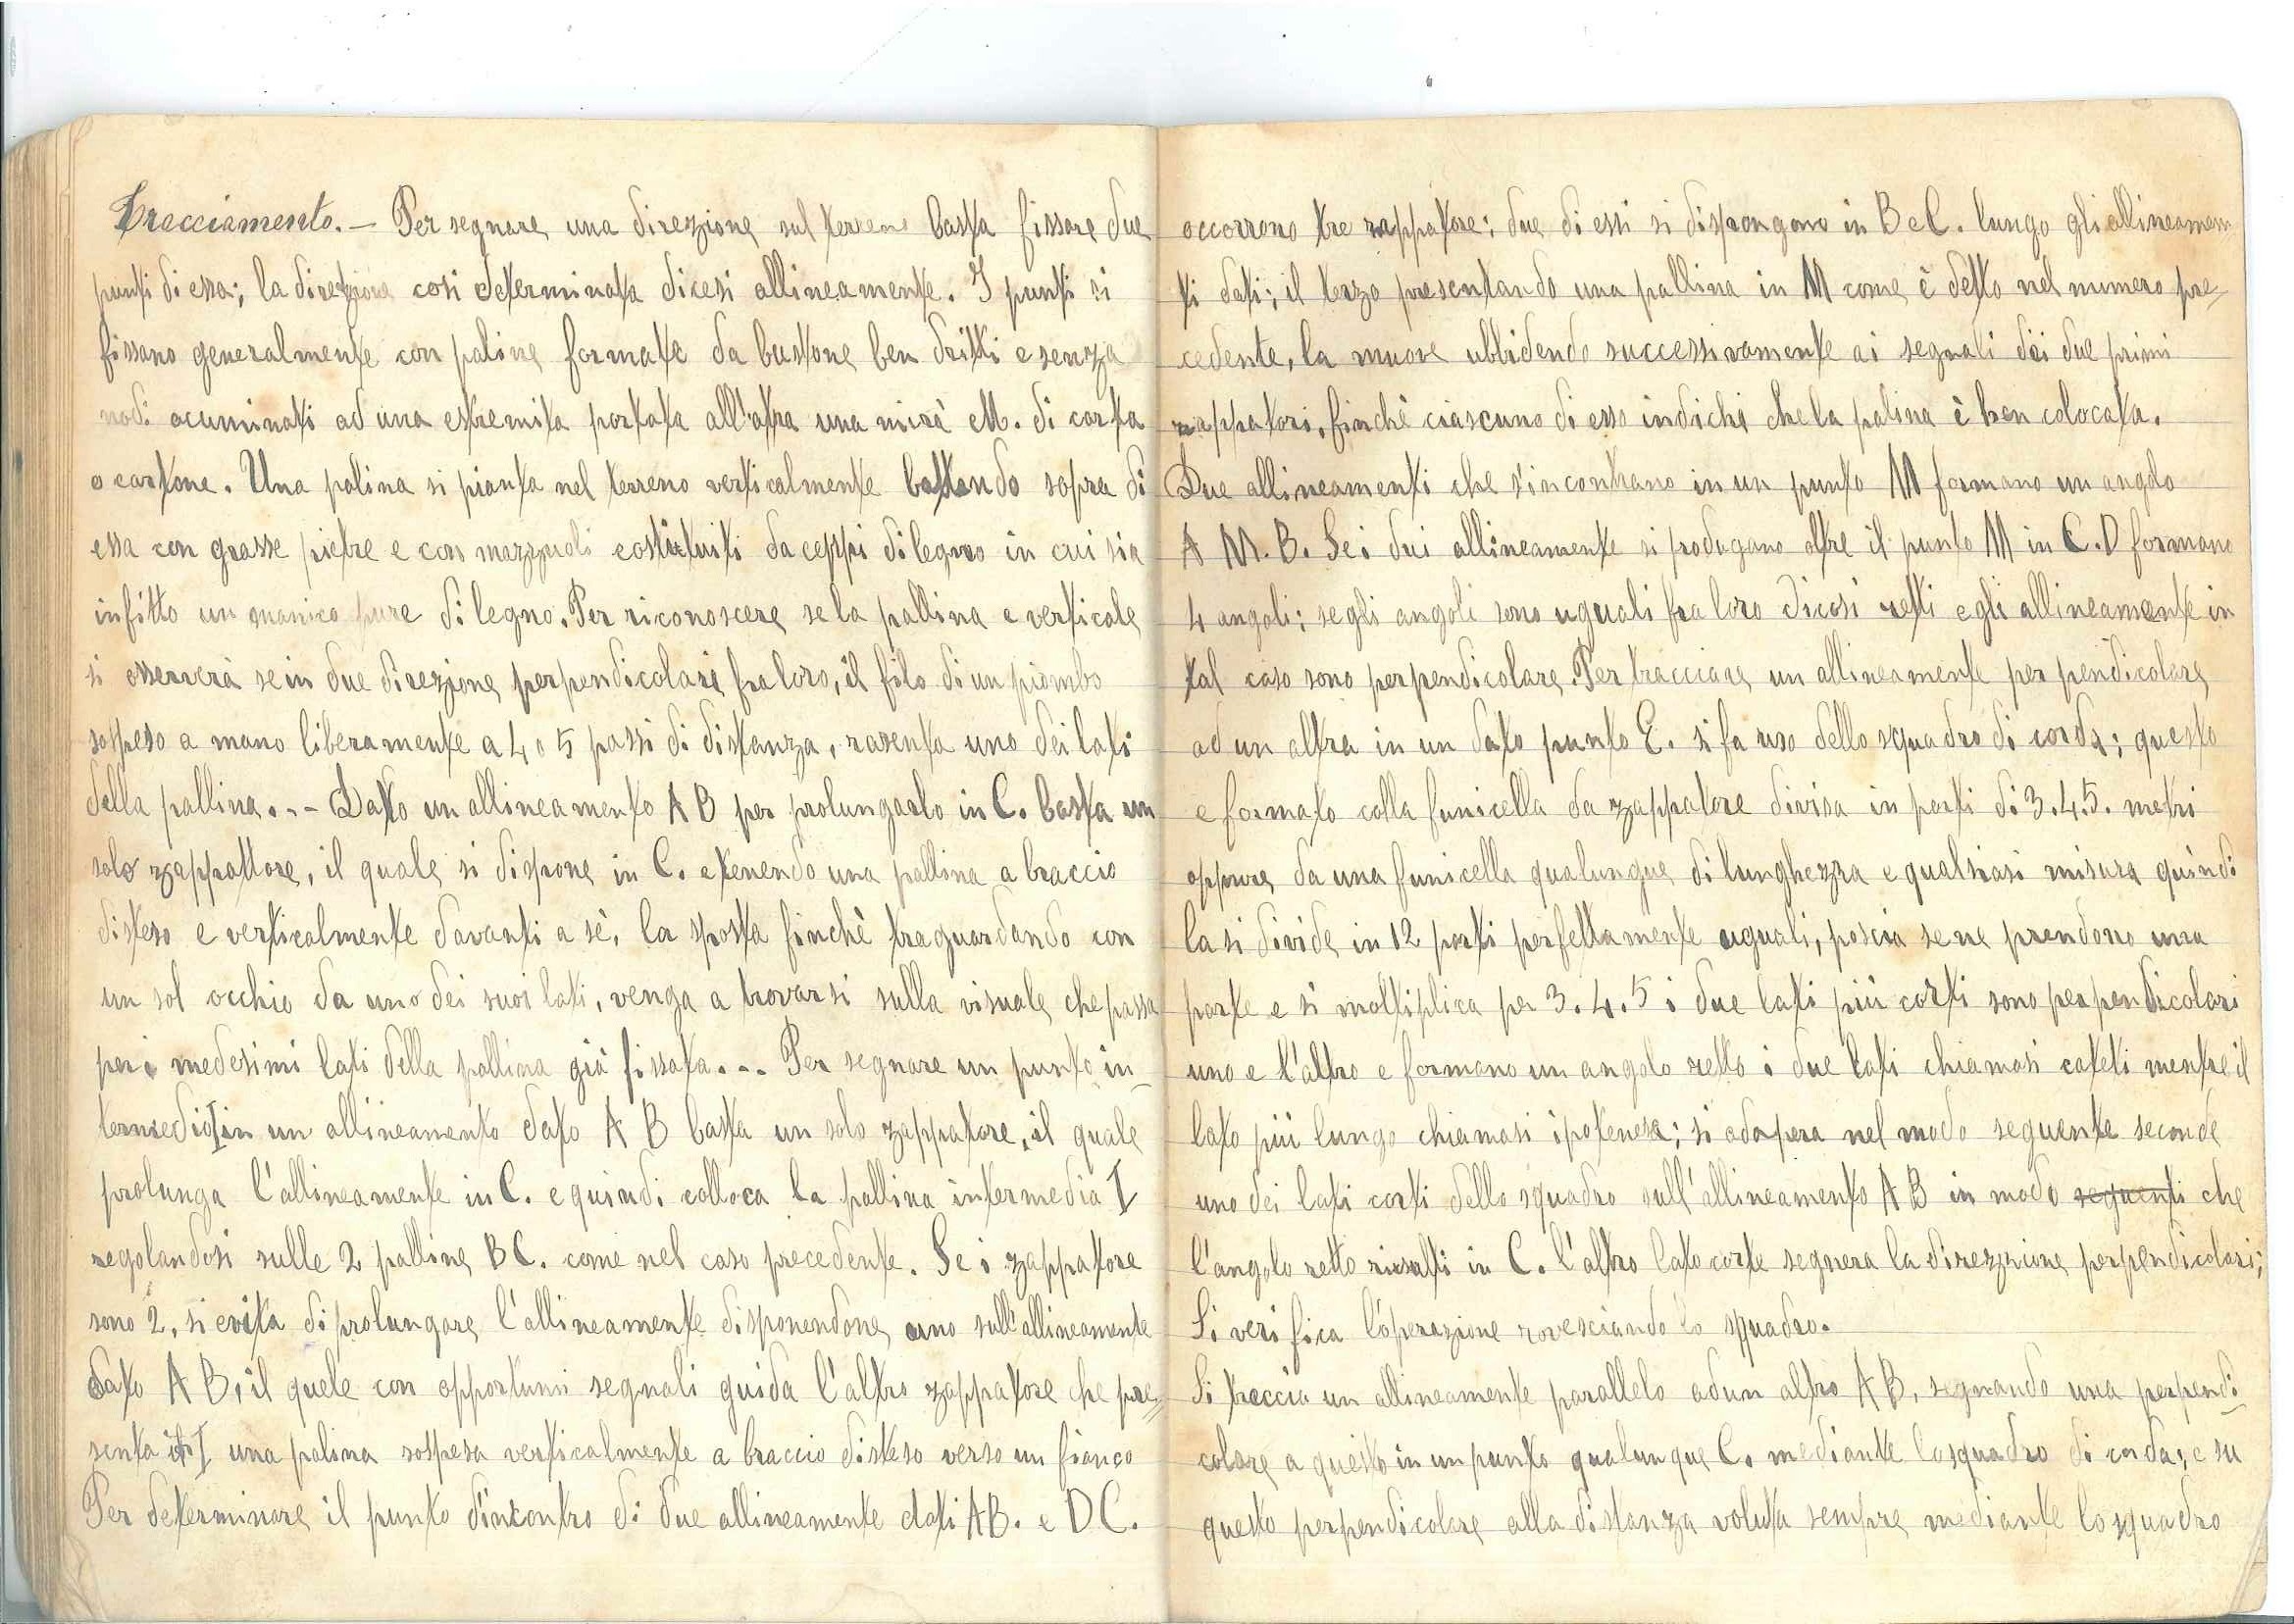 Tracciamento. — Per segnare una direzione sul terreno basta fissare due
punti di essa; la direzione cosi determinata dicesi allineamente. I punti si
fissano generalmente con paline formate da bastone ben dritti e senza
nodi acuminati ad una estremita portata all'altra una mirà M. di carta
o cartone. Una palina si pianta nel terreno verticalmente battendo sopra di
essa con grosse pietre e con mazzuoli costituiti da ceppi di legno in cui sia
infitto un manico pure di legno. Per riconoscere se la pallina e verticale
si osserverà se in due direzione perpendicolari fra loro, il filo di un piombo
sospeso a mano liberamente a 4 o 5 passi di distanza, rasenta uno dei lati
della pallina. - - Dato un allineamento A B per prolungarlo in C. basta un
solo zappattore, il quale si dispone in C. e tenendo una pallina a braccio
disteso e verticalmente davanti a sè, la sposta finchè traguardando con
un sol occhio da uno dei suoi lati, venga a trovarsi sulla visuale che passa
per i medesimi lati della pallina già fissata. - - Per segnare un punto in-
termedio I in un allineamento dato A B basta un solo zappatore, il quale
prolunga l'allineamente in C. e quindi colloca la pallina intermedia I
regolandosi sulle 2 palline B C. come nel caso precedente. Se i zappatore
sono 2, si evita di prolungare l'allineamente disponendone uno sull'allineamente
dato A B, il quele con opportuni segnali guida l'altro zappatore che pre=
senta in I una palina sospesa verticalmente a braccio disteso verso un fianco
Per determinare il punto d'incontro di due allineamente dati A B. e D C.
occorrono tre zappatore; due di essi si dispongono in B e C. lungo gli allineamen
ti dati; il terzo presentando una pallina in M come è detto nel numero pre-
cedente, la muove ubbidendo successivamente ai segnali dei due primi
zappatori, finchè ciascuno di esso indichi che la palina è ben colocata.
Due allineamenti che s'incontrano in un punto M formano un angolo
A M. B. Se i dui allineamente si produgano oltre il punto M in C. D formano
4 angoli; se gli angoli sono uguali fra loro dicosi retti e gli allineamente in
tal caso sono perpendicolare. Per tracciare un allineamente per pendicolare
ad un altra in un dato punto C. si fa uso dello squadro di corda; questo
e formato colla funicella da zappatore divisa in parti di 3. 4. 5. metri
oppure da una funicella qualungue di lunghezza e qualsiasi misura quindi
la si divide in 12 parti perfettamente uguali, poscia se ne prendono una
parte e si moltiplica per 3. 4. 5 i due lati più corti sono perpendicolari
uno e l'altro e formano un angolo retto i due lati chiamasi cateti mentre il
lato più lungo chiamasi ipotenesa; si adopera nel modo seguente seconde
uno dei lati corti dello squadro sull'allineamento A B in modo seguenti che
l'angolo retto risulti in C. l'altro lato corte segnera la direzzione perpendicolari;
Si verifica l'operazione rovesciando lo squadro.
Si traccia un allineamente parallelo ad un altro A B, segnando una perpendi-
colare a questo in un punto qualunque C. mediante lo squadro di corda; e su
questo perpendicolare alla distanza voluta sempre mediante lo squadro